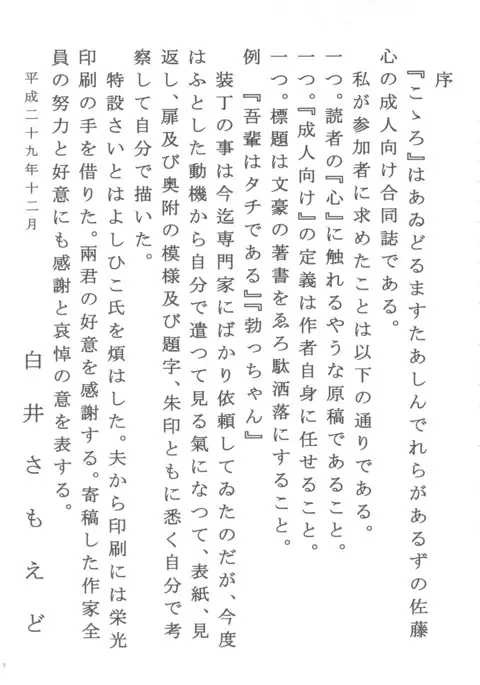 序
『こゝろ』はあゐどるますたあしんでれらがあるずの佐藤
心の成人向け合同誌である。
私が参加者に求めたことは以下の通りである。
一つ。読者の『心』に触れるやうな原稿であること。
一つ。『成人向け』の定義は作者自身に任せること。
一つ。標題は文豪の著書をゑろ駄洒落にすること。
例　『吾輩はタチである』『勃っちゃん』
装丁の事は今迄専門家にばかり依頼してゐたのだが、今度
はふとした動機から自分で遣つて見る氣になつて、表紙、見
返し、扉及び奥附の模様及び題字、朱印ともに悉く自分で考
察して自分で描いた。
特設さいとはよしひこ氏を煩はした。夫から印刷には栄光
印刷の手を借りた。兩君の好意を感謝する。寄稿した作家全
員の努力と好意にも感謝と哀悼の意を表する。
平成二十九年十二月
白井さもえど